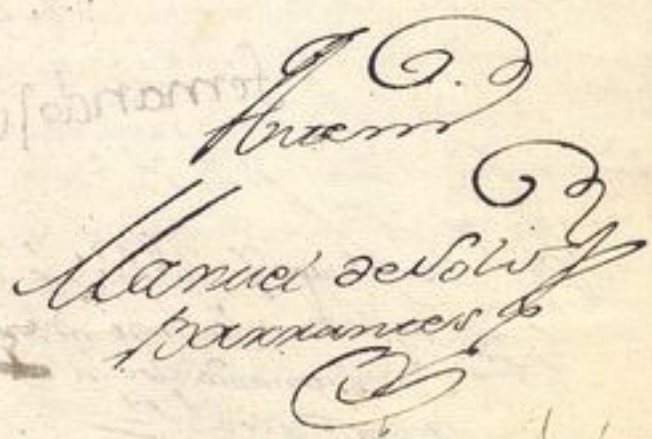 Antemi
Manuel de Solis
Barrantes